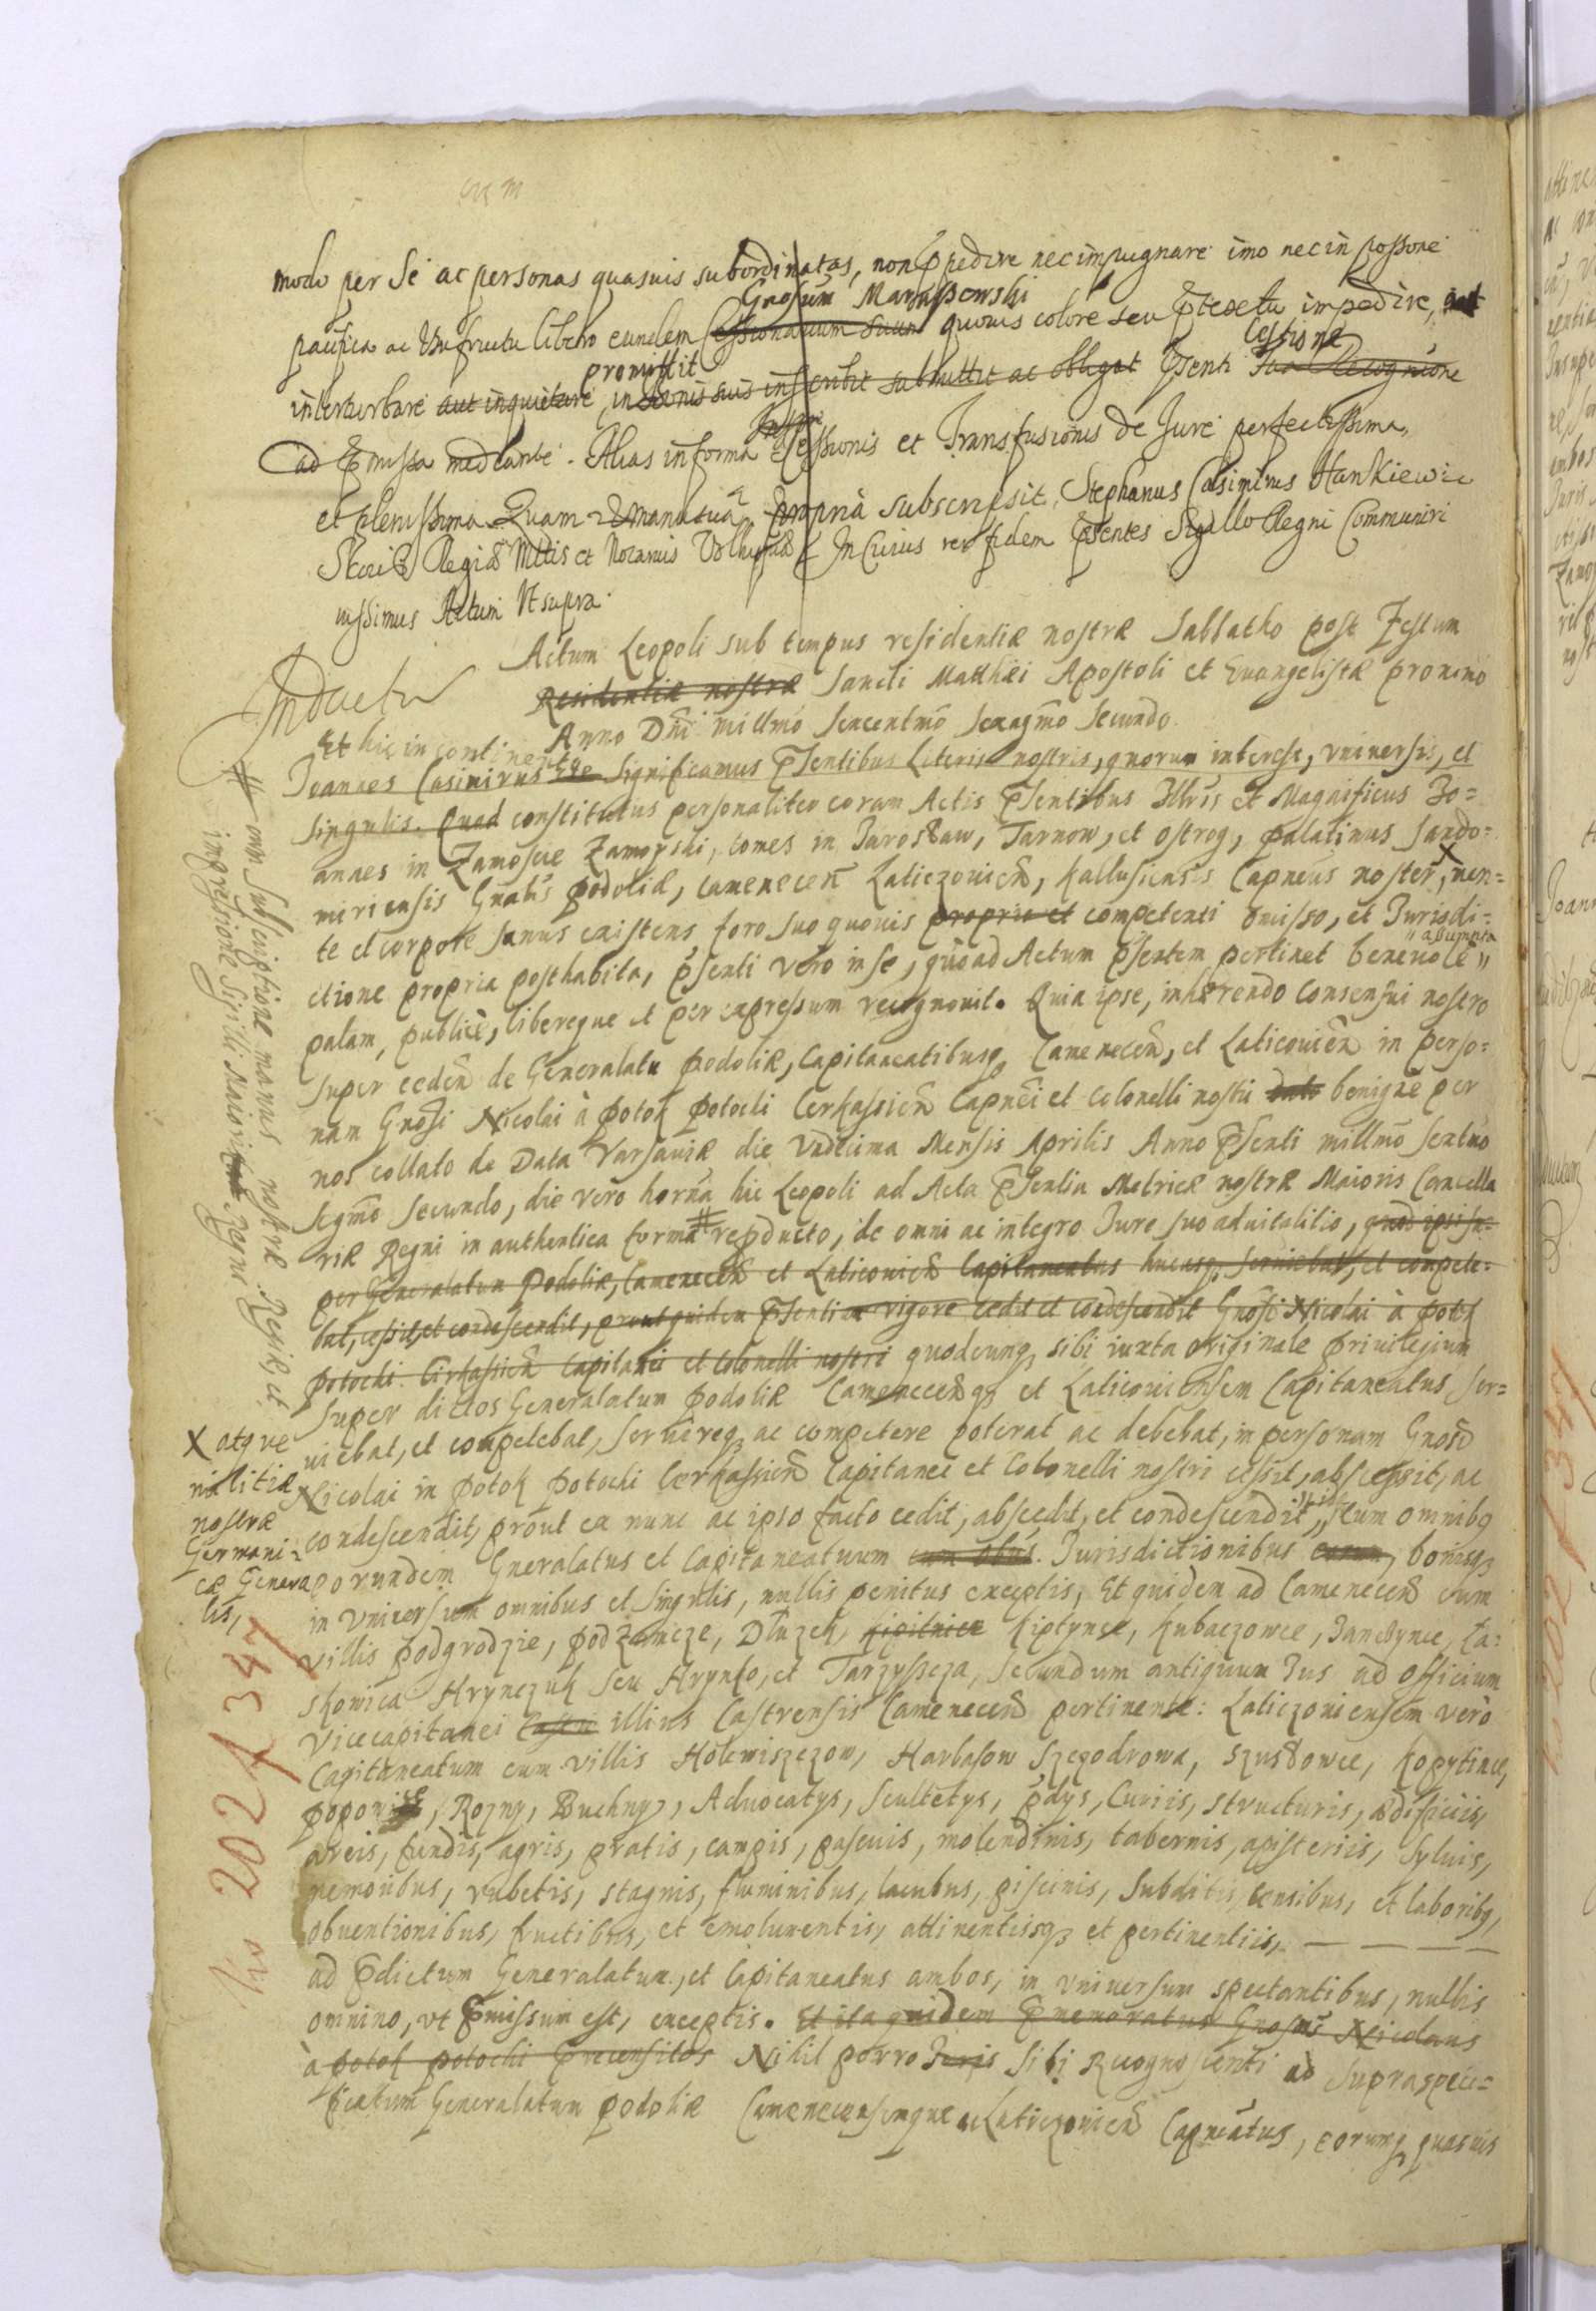 modo per Se ac personas quasuis subordinatas, non p̃pedire nec impugnare imo nec in possone
Gnosum Maraszowski
pacifica ac Vsufructu libero eundem Cessionarium suum quouis colore seu p̃textu impedire, aut
promittit
Cessione
interturbare aut inquietare, in bonis suis inscribit submittit ac obligat p̃senti sua Recognitione
ad p̃missa mediante. Alias in forma Cessionis et Transfusionis de Jure perfectissima,
et plenissima. Quam manu sua propria subscripsit, Stephanus Casimirus Hankiewic
Regiæ Mttis et Notarius In Cuius rei fidem p̃sentes Sigillo Regni Communiri
iussimus Actum Vt supra.
Actum Leopoli sub tempus residentiæ nostræ Sabbatho post Festum
Inductu
Residentiæ nostræ Sancti Matthæi Apostoli et Euangelistæ proximo
Anno Dñi millmo sexcentmo sexagmo secundo.
Et hic in continenti
Joannes Casimirus Etc Significamus p̃sentibus Literis nostris, quorum interest, vniuersis, et
singulis. Quod constitutus personaliter coram Actis p̃sentibus Illris et Magnificus Jo=
annes in Zamoscie Zamoyski, comes in Jarosław, Tarnow, et Ostrog, palatinus Sando=
miriensis Gnalis podoliæ, camenecen̄ Laticzouien̄, Kallusiensis Capneus noster, X men=
te et corpore sanus existens, foro suo quouis proprio et competenti omisso, et Jurisdi=
" assumpta
ctione propria posthabita, p̃senti vero in se, quoad Actum p̃sentem pertinet beneuole "
palam, publice, libereque et per expressum recognouit. Quia ipse, inhærendo consensui nostro
super ceden̄ de Generalatu podoliæ, Capitaneatibusq3 Camenecen̄, et Laticouien̄ in perso=
nam Gnosi Nicolai à potok potocki Cerkassien̄ Capnei et Colonelli nostri dato benigne per
nos collato de Data Varsauiæ die Vndecima Mensis Aprilis Anno p̃senti millmo sextmo
segmo secundo, die vero horna hic Leopoli ad Acta p̃sentia Metricæ nostræ Maioris Cancella
riæ Regni in authentica forma # repducto, de omni ac integro Jure suo aduitalitio, quod ipsi su=
per Generalatum podoliæ, Camenecen̄ et Laticouien̄ Capitaneatus hucusq3 seruiebat, et compete=
bat, cessit, et condescendit, prout quidem p̃sentium vigore cedit et condescendit Gnosi Nicolai à potok
potocki Cirkassien̄ Capitanei et Colonelli nostri quodcunq3 sibi iuxta originale priuilegium
super dictos Generalatum podoliæ Camenecen̄q3 et Laticouiensem Capitaneatus ser=
uiebat, et competebat, seruireq3 ac competere poterat ac debebat, in personam Gnosi
Nicolai in potok potocki Cerkassien̄ Capitanei et Colonelli nostri cessit, abscessit, ac
condescendit, prout ex nunc ac ipso facto cedit, abscedit, et condescendit, cum omnibq
eorundem Gneralatus et Capitaneatuum cum obus. Jurisdictionibus earum, bonisq3
in Vniuersum omnibus et singulis, nullis penitus exceptis, Et quidem ad Camenecen̄ cum
villis podgrodzie, podzamcze, Dłuzek, Kipitnice Kiptynce, Kubaczowce, Janczynce, La=
skowica Hrynczuk seu Hrynko, et Tarzyszcza, secundum antiquum Jus ad officium
Vicecapitanei Castri illius Castrensis Camenecen̄ pertinente: Laticzouiensem vero
Capitaneatum cum villis Holewiszczow, Harbasow Szczodrowa, Szusłowce, Kopytince,
popowce, Rozny, Buchny, Aduocatys, scultetys, p̃dys, Curiis, structuris, ædificiis,
areis, fundis, agris, pratis, campis, pascuis, molendinis, tabernis, apisteriis, syluis,
nemoribus, rubetis, stagnis, fluminibus, lacubus, piscinis, subditis, censibus, et laboribq,
obuentionibus, fructibus, et emolumentis, attinentiisq3 et pertinentiis, — — — —
ad p̃dictum Generalatum, et Capitaneatus ambos, in vniuersum spectantibus, nullis
omnino, vt p̃missum est, exceptis. Et ita quidem p̃memoratus Gnosus Nicolaus
à potok potocki p̃recensitos Nihil porro Juris sibi Recognoscenti ad supraspeci=
ficatum Generalatum podoliæ Camenecensemque ac Laticzouien̄ Capneatus, eorumq3 quasuis
X atque
militiæ
nostræ
Germani=
cæ Genera
lis,
# cum subscriptione manus nostræ Regiæ, et
impressione Sigilli Maioris Regni
No 202 f 347